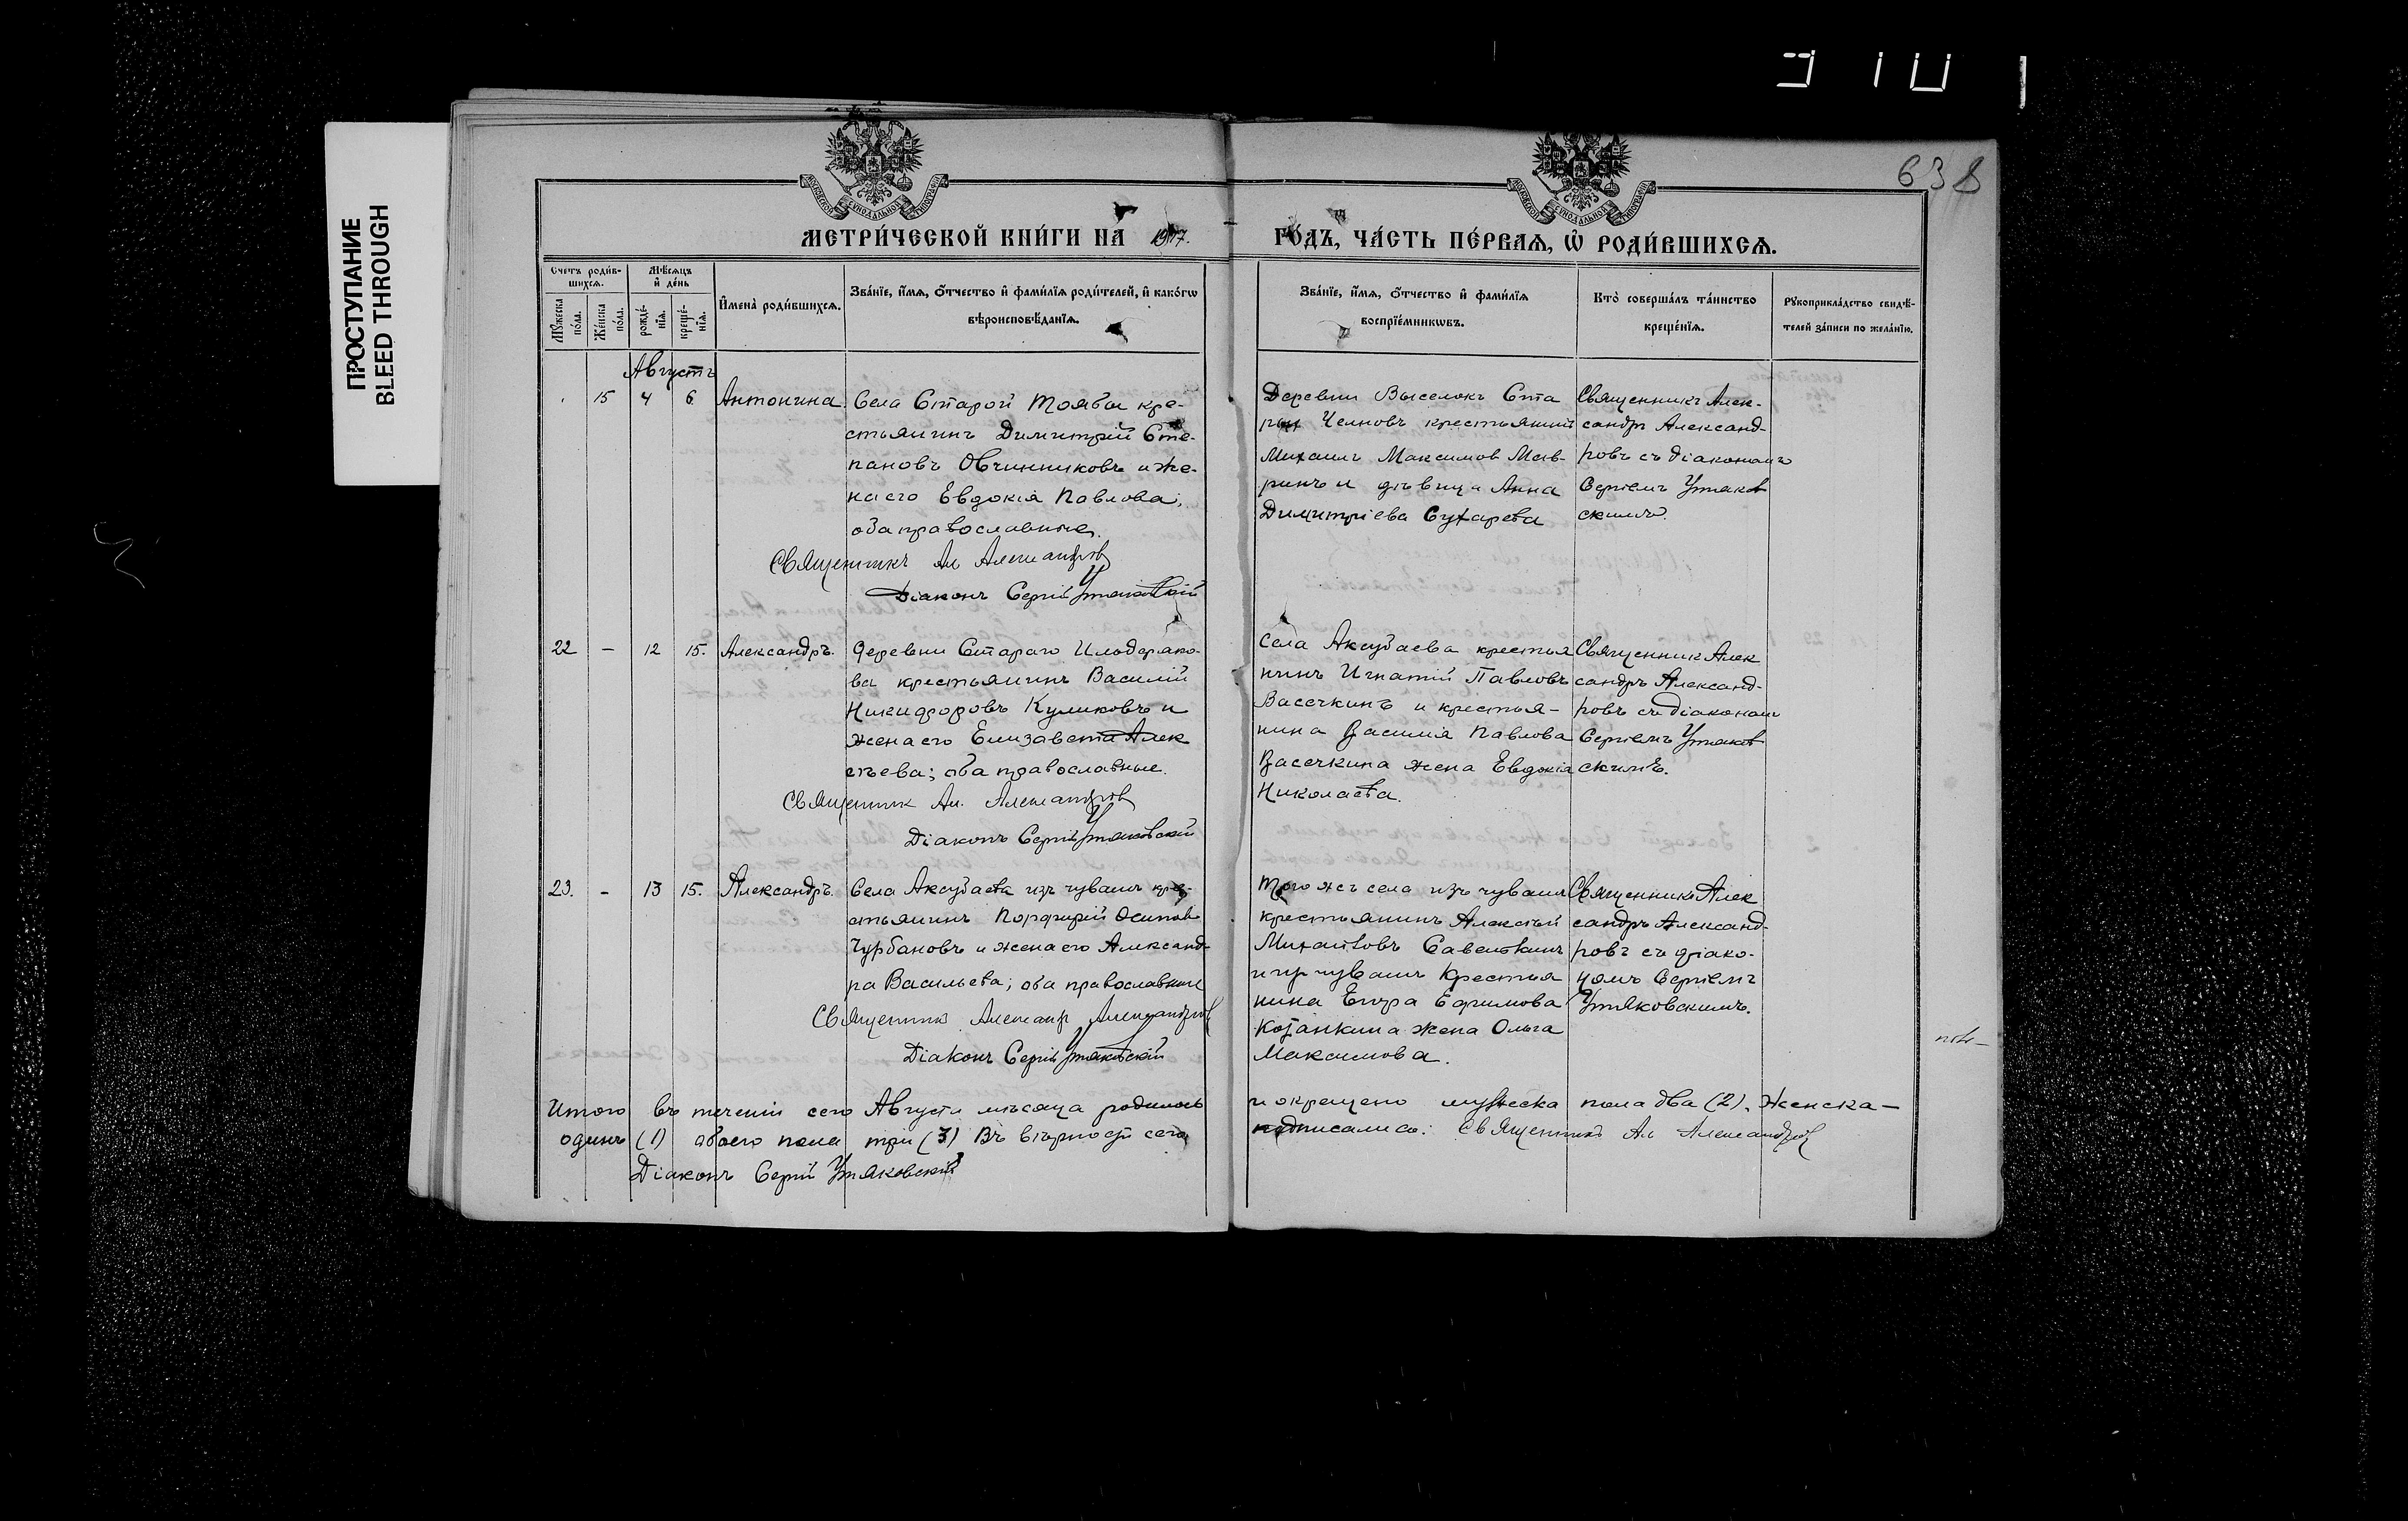 ПРОСТУПАНИЕ
BLEED THROUGH
638
МЕТРИ́ЧЕСКОЙ КНИ́ГИ НА̀ 1917.
ГО́ДЪ, ЧА́СТЬ ПЕ́РВАѦ, Ѽ РОДИ́ВШИХСѦ.
Счетъ роди́в-
шихсѧ.
Мѣ́сѧцъ
и҆ де́нь
Мꙋ́жеска
по́ла.
Же́нска
по́ла.
рожде́-
нїѧ.
креще́-
нїѧ.
И҆мена̀ роди́вшихсѧ.
Зва́нїе, и҆́мѧ, ѻ҆́тчество и҆ фами́лїѧ роди́телей, и҆ како́гѡ
вѣроисповѣ́данїѧ.
Зва́нїе, и҆́мѧ, ѻ҆́тчество и҆ фами́лїѧ
воспрїе́мникѡвъ.
Кто̀ соверша́лъ та́инство
креще́нїѧ.
Рꙋкоприкла́дство свидѣ́-
телей за́писи по жела́нїю.
Августъ
15 4 6 Антонина.
Села Старой Тоябы кре-
стьянинъ Димитрій Сте-
пановъ Овчинниковъ и же-
на его Евдокія Павлова;
оба православные.
Священникъ Ал Александров
Діаконъ Сергій Утяковскій
Деревни Выселокъ Ста
рых Челновъ крестьянин
Михаилъ Максимов Мав-
ринъ и дѣвица Анна
Димитріева Сухарева
Священникъ Алек-
сандръ Александ-
ровъ съ діакономъ
Сергіемъ Утяков
скимъ.
22 — 12 15. Александръ.
Деревни Стараго Ильдеряко-
ва крестьянинъ Василій
Никифоровъ Куликовъ и
жена его Елизавета Алек
сѣева; оба православные.
Священник Ал. Александров
Діаконъ Сергій Утяковскій
Села Аксубаева крестья
нинъ Игнатій Павловъ
Васечкинъ и крестья-
нина Василія Павлова
Васечкина жена Евдокія
Николаева.
Священник Алек
сандръ Александ-
ровъ съ діакономъ
Сергіемъ Утяков
скимъ.
23. — 13 15. Александръ.
Села Аксубаева изъ чувашъ кре-
стьянинъ Порфирій Осипов
Чурбановъ и жена его Александ-
ра Васильева; оба православные
Священник Александр Александров
Діаконъ Сергій Утяковскій
Того же села изъ чувашъ
крестьянинъ Алексѣй
Михайловъ Савелькинъ
и изъ чувашъ крестья
нина Егора Ефимова
жена Ольга
Максимова.
Священникъ Алек
сандръ Александ-
ровъ съ діако-
номъ Сергіемъ
Утяковскимъ.
Итого въ теченіи сего Августа мѣсяца родилось и окрещено мужеска пола два (2). Женска—
одинъ (1) обоего пола три (3) Въ вѣрности сего подписались: Священникъ Ал Александров
Діаконъ Сергій Утяковскій